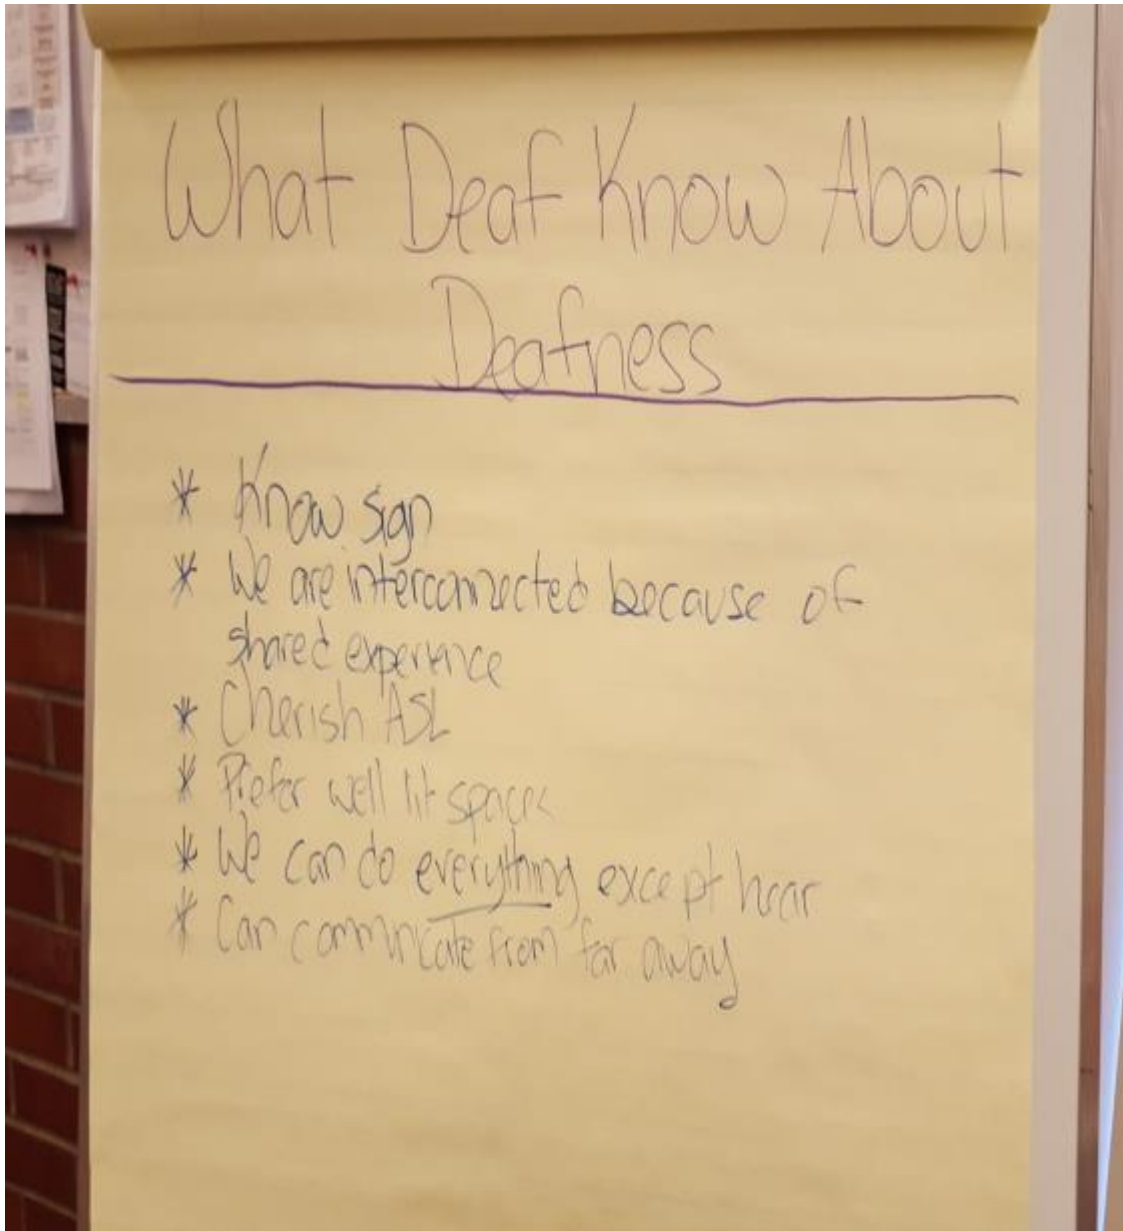 What Deaf Know About
Deafness
* Know sign
* We are interconnected because of
shared experience
* Cherish ASL
* Prefer well lit spaces
* We can do everything except hear
* Can communicate from far away